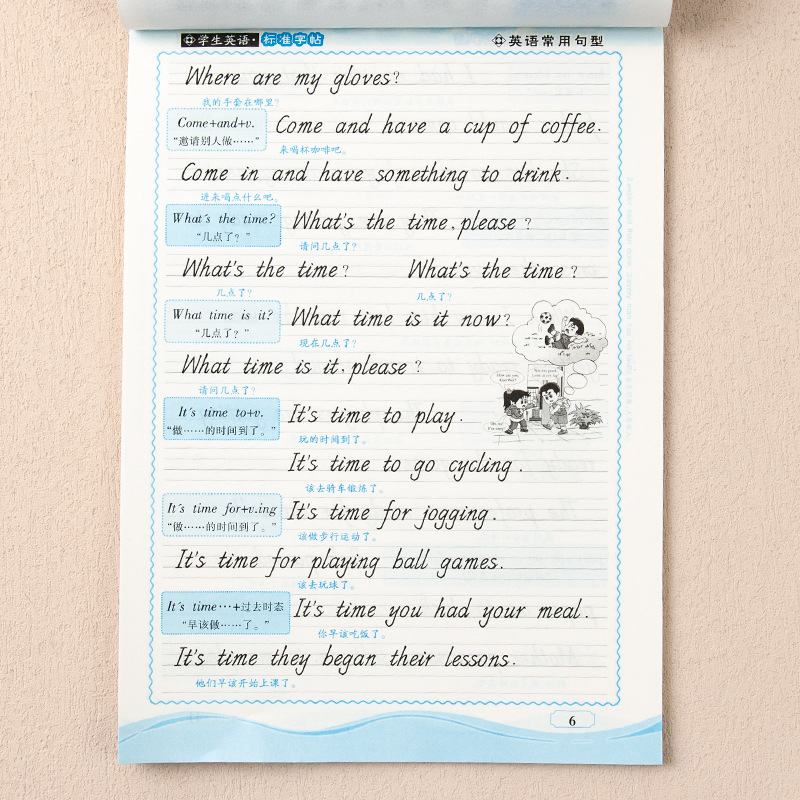 学生英语·标准字帖
英语常用句型
Where are my gloves?
我的手套在哪里?
Come+and+v.
“邀请别人做……”
Come and have a cup of coffee.
来喝杯咖啡吧。
Come in and have something to drink.
进来喝点什么吧。
What's the time?
“几点了?”
What's the time, please?
请问几点了?
What's the time? What's the time?
几点了? 几点了?
What time is it?
“几点了?”
What time is it now?
现在几点了?
What time is it, please?
请问几点了?
It's time to+v.
“做……的时间到了。”
It's time to play.
玩的时间到了。
It's time to go cycling.
该去骑车锻炼了。
It's time for+v.ing
“做……的时间到了。”
It's time for jogging.
该做步行运动了。
It's time for playing ball games.
该去玩球了。
It's time…+过去时态
“早该做……了。”
It's time you had your meal.
你早该吃饭了。
It's time they began their lessons.
他们早该开始上课了。
6